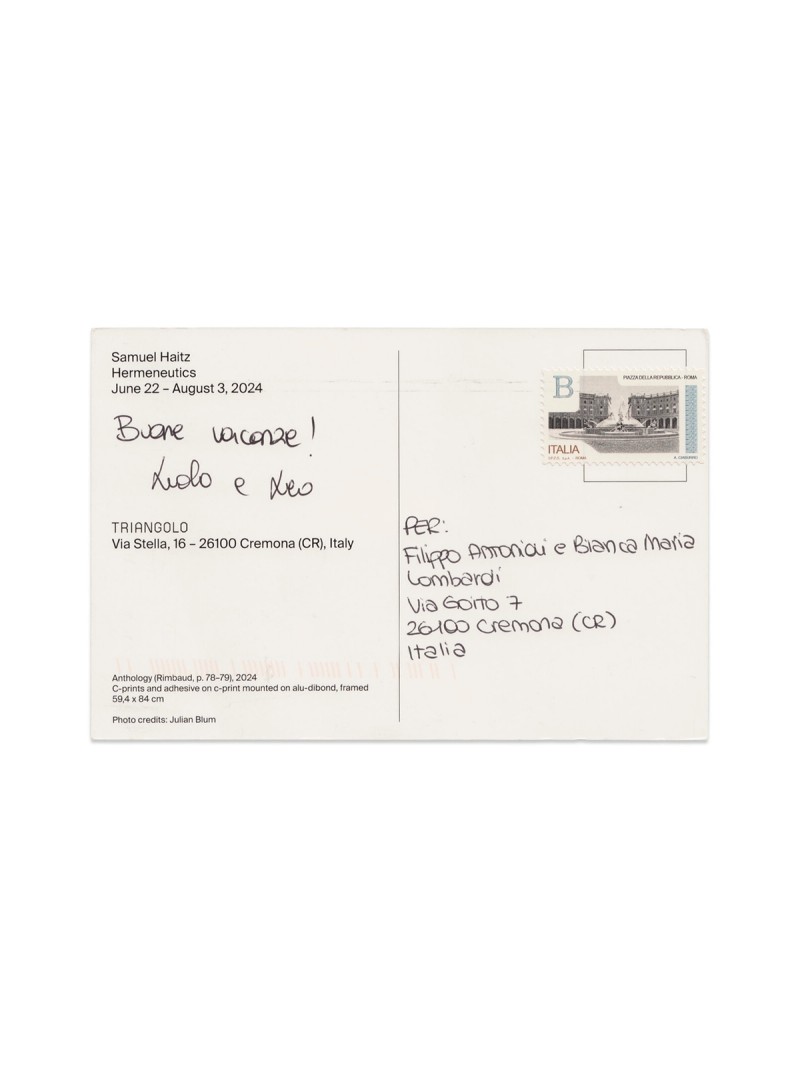 Samuel Haitz
Hermeneutics
June 22 – August 3, 2024
Buone vacanze!
e Leo
TRIANGOLO
Via Stella, 16 – 26100 Cremona (CR), Italy
Anthology (Rimbaud, p. 78–79), 2024
C-prints and adhesive on c-print mounted on alu-dibond, framed
59,4 x 84 cm
Photo credits: Julian Blum
B
PIAZZA DELLA REPUBBLICA - ROMA
ITALIA
PER:
Filippo e Bianca Maria
Lombardi
Via Goito 7
26100 Cremona (CR)
Italia